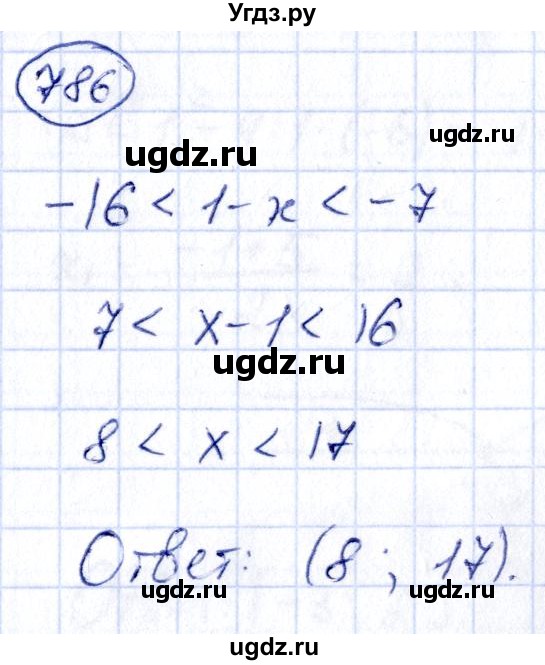 Угдз.ру
786
ugdz.ru
-16 < 1-x < -7
7 < x-1 < 16
ugdz.ru
8 < x < 17
Ответ: (8; 17).
ugdz.ru ugdz.ru